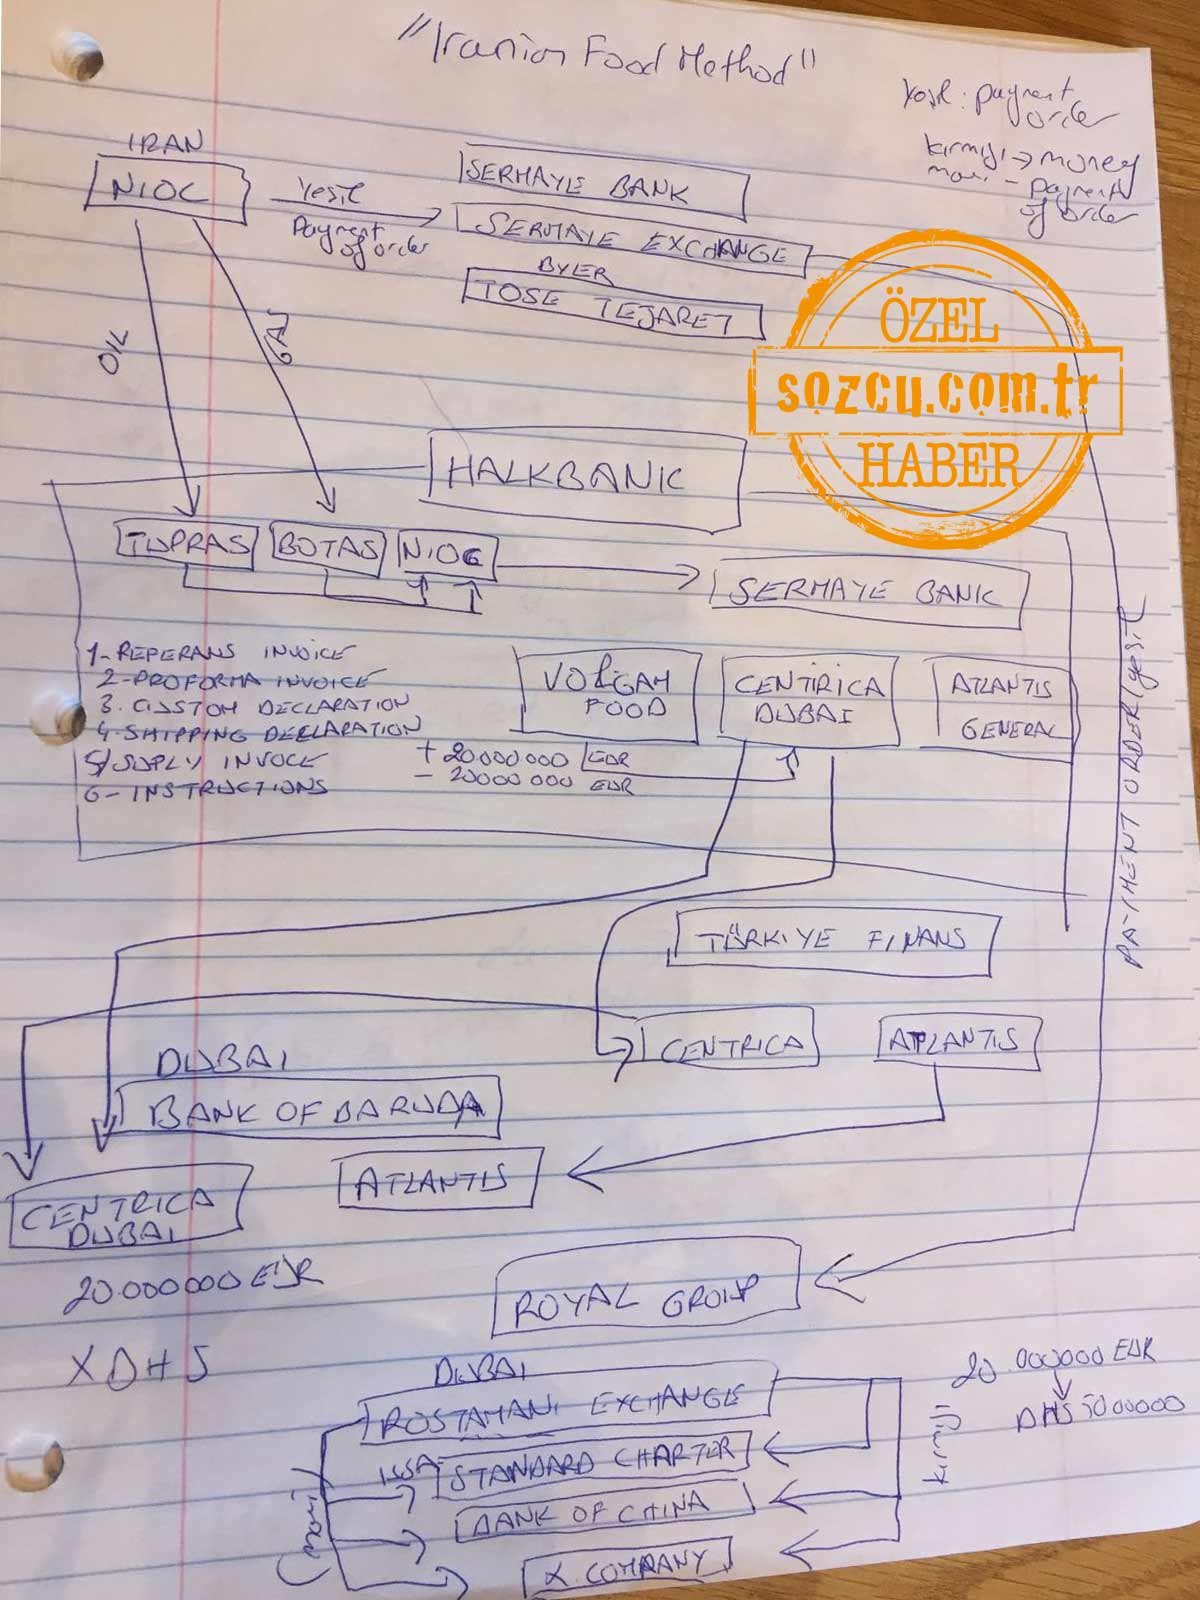 "Iranian Food Method"
Yeşil : payment
order
Kırmızı → money
Mavi - payment
of order
IRAN
NIOC
Yesil
Payment
of order
SERMAYE BANK
SERMAYE EXCHANGE
BYLER
TOSE TEJARET
ÖZEL
sozcu.com.tr
HABER
OIL
GAS
HALKBANK
TUPRAS
BOTAS
NIOC
SERMAYE BANK
1- REPERANS INVOICE
2- PROFORMA INVOICE
3. CUSTOM DECLARATION
4- SHIPPING DECLARATION
5/ SUPLY INVOCE
6- INSTRUCTIONS
VOLGAM
FOOD
CENTIRICA
DUBAI
ATLANTIS
GENERAL
+ 20.000000 EUR
- 20000000 EUR
PAYMENT ORDER (yesil
TÜRKIYE FINANS
CENTRICA
ATLANTIS
DUBAI
BANK OF BARUDA
ATLANTIS
CENTRICA
DUBAI
20.000000 EUR
X DHS
ROYAL GROUP
DUBAI
ROSTAMANI EXCHANGE
STANDARD CHARTER
BANK OF CHINA
X. COMPANY
(mavi)
kırmızı
20.000000 EUR
DHS 5000000